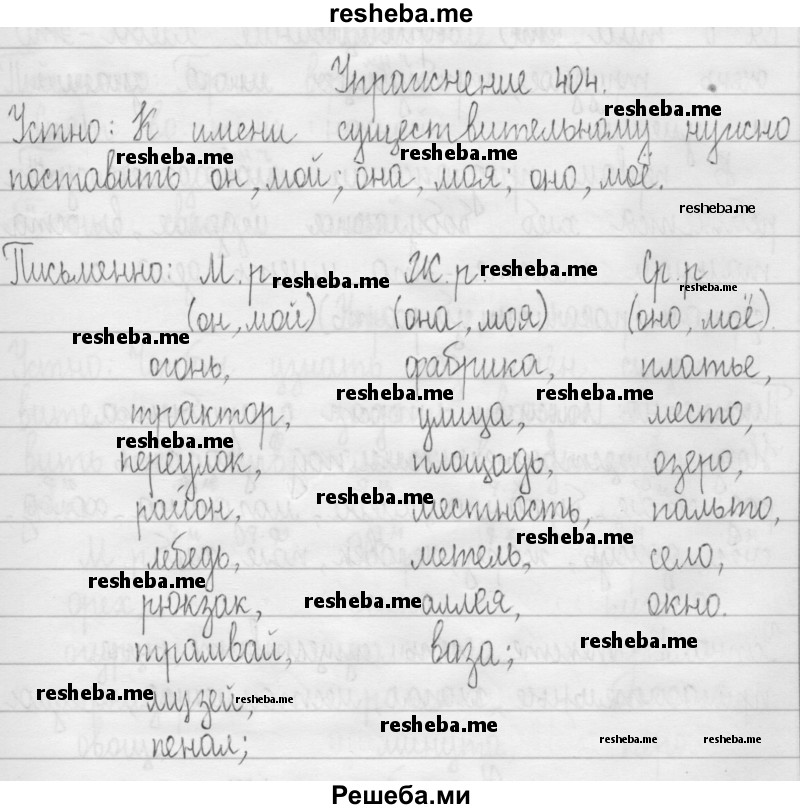 resheba.me
Упражнение 404.
Устно: К имени существительному нужно
resheba.me
resheba.me resheba.me
поставить он, мой; она, моя; оно, моё.
resheba.me
Письменно: М.р. Ж.р. Ср.р
resheba.me resheba.me resheba.me
(он, мой) (она, моя) (оно, моё).
resheba.me
огонь, фабрика, платье,
resheba.me resheba.me
трактор, улица, место,
resheba.me
переулок, площадь, озеро,
resheba.me
район, местность, пальто,
resheba.me
лебедь, метель, село,
resheba.me
рюкзак, аллея, окно.
resheba.me
resheba.me
трамвай, ваза;
resheba.me resheba.me
музей,
resheba.me
пенал;
resheba.me resheba.me
Решеба.ми